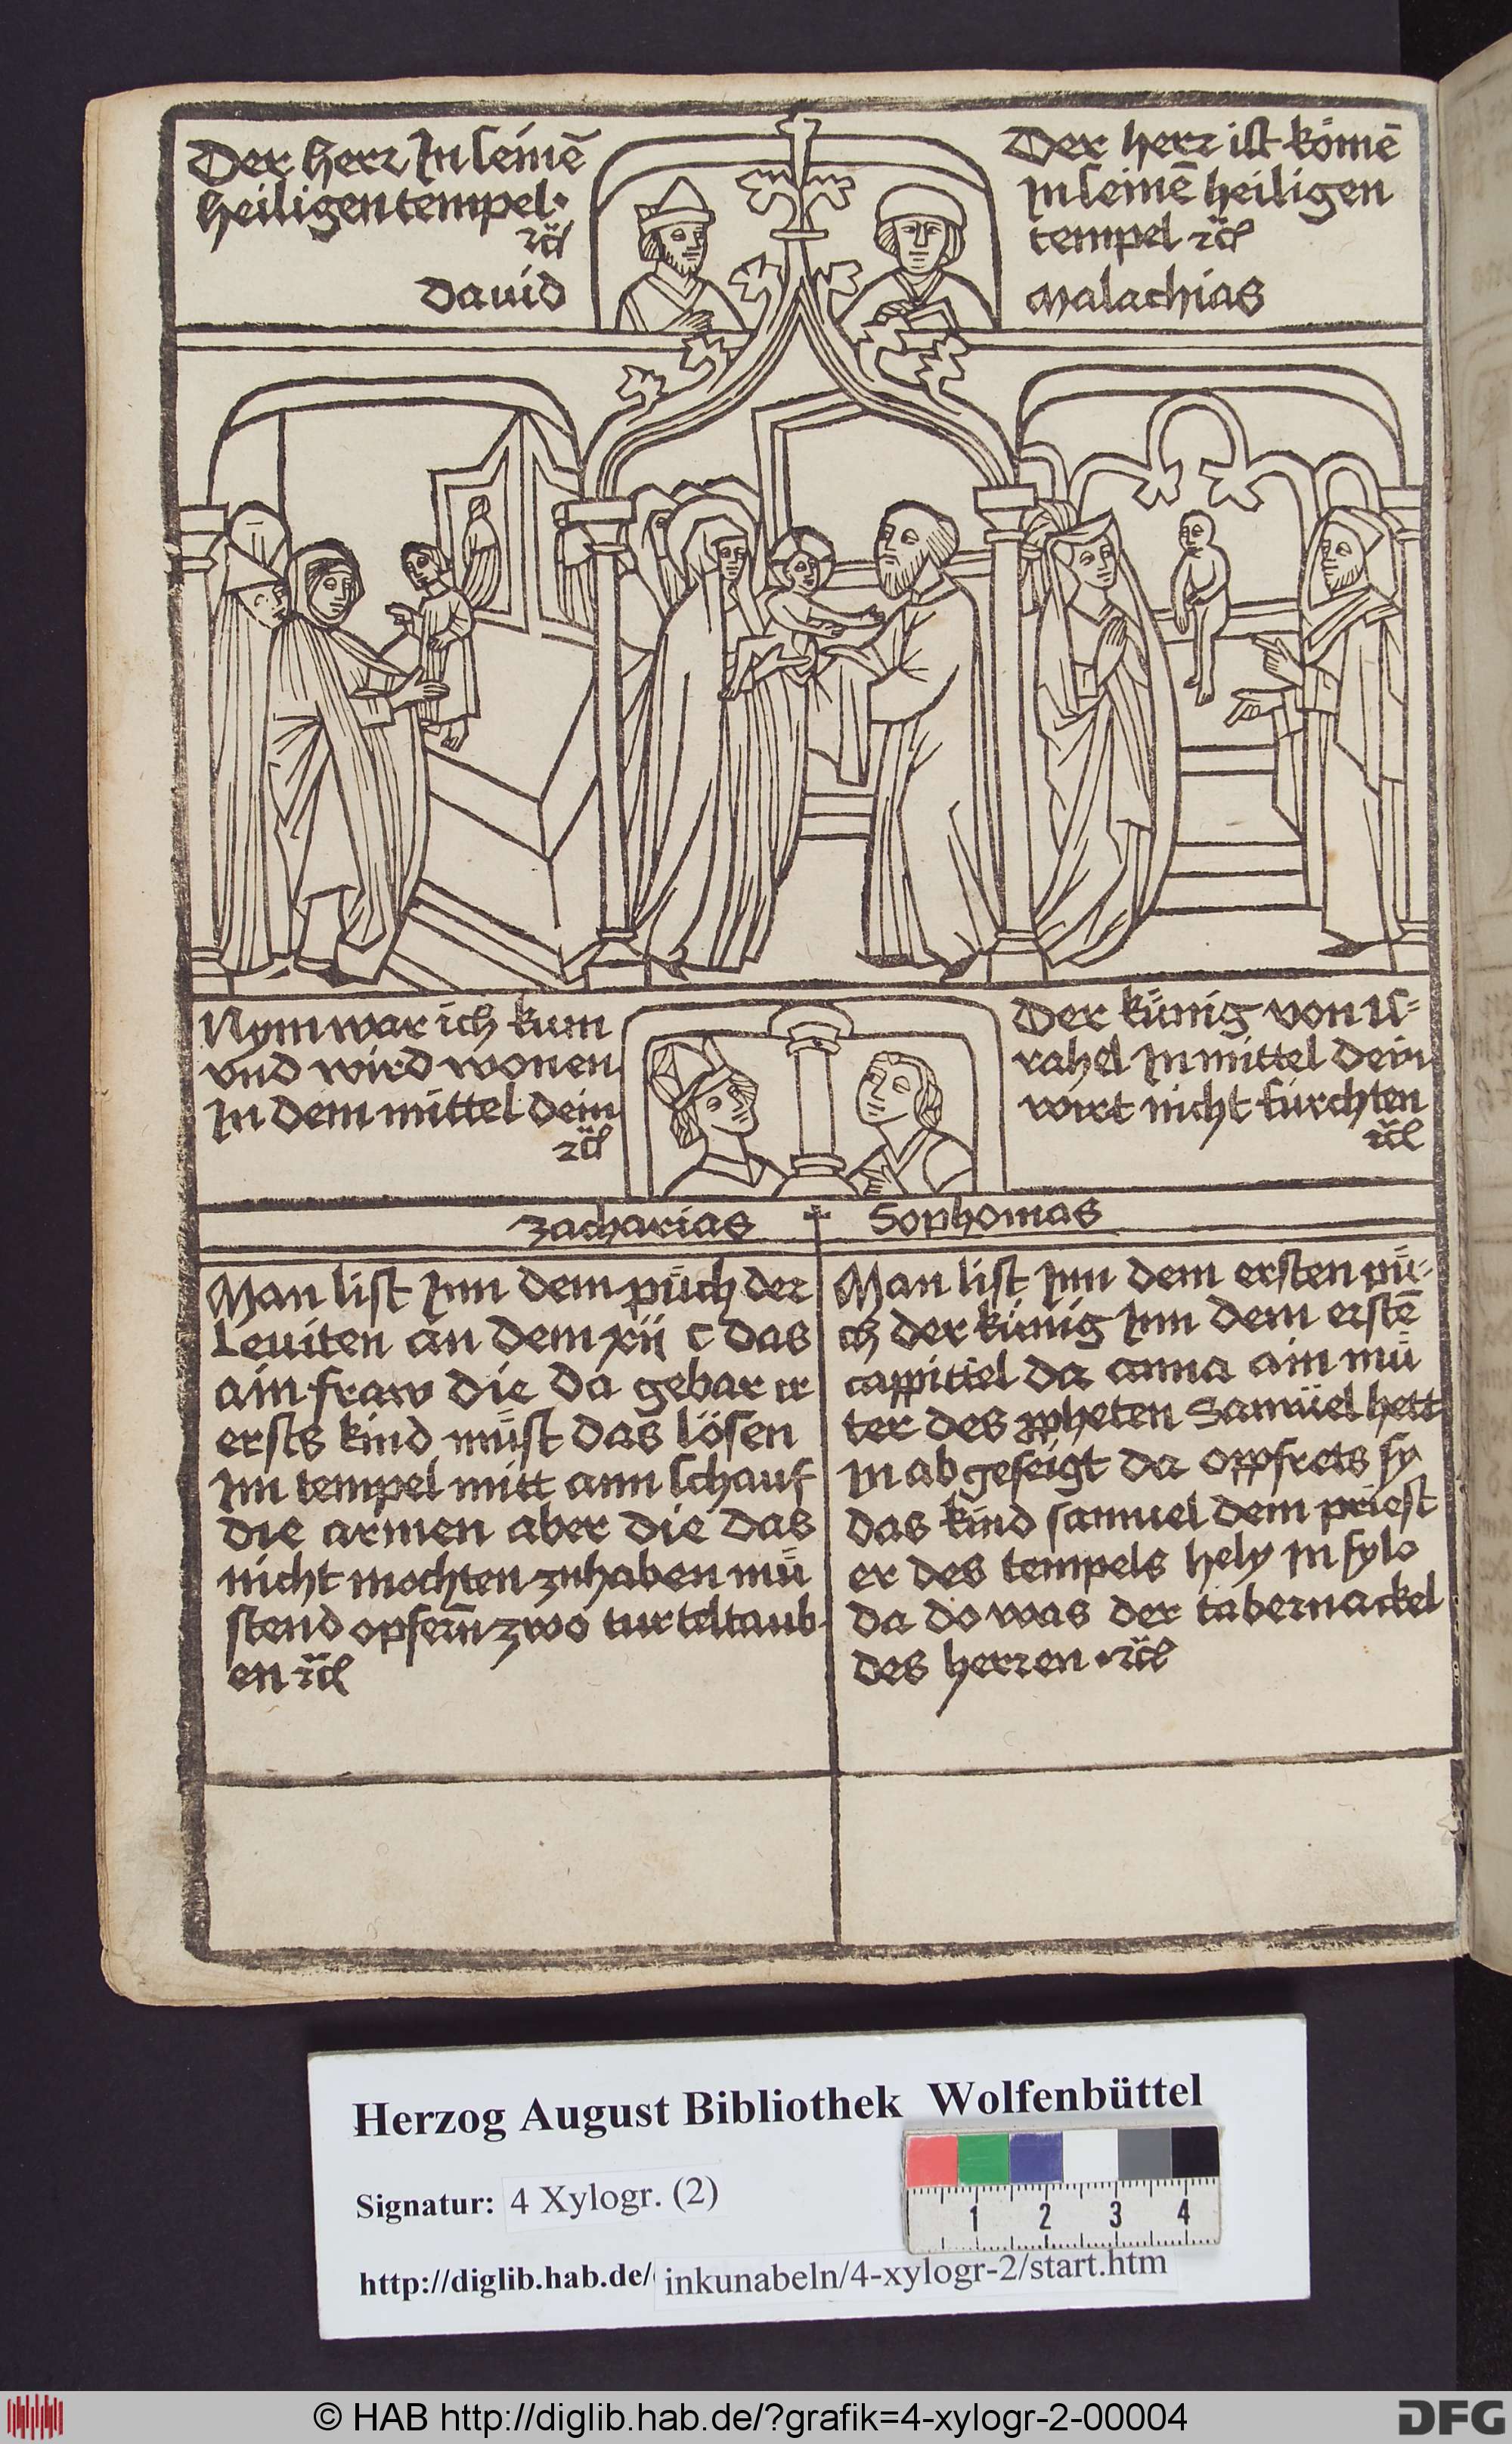 Der herr In seinē
heiligen tempel·
ꝛc̈
Dauid
Der herr ist kömē
In seinē heiligen
tempel ꝛc̈
Malachias
Nym war ich kum
vnd wird wonen
In dem mittel dein
ꝛc̈
Der künig von Is⸗
rahel In mittel dein
wirt nicht fürchten
ꝛc̈
Zacharias
Sophonias
Man list Inn dem püch der
Leuiten an dem xii c das
ain fraw die da gebar ir
ersts kind müst das lösen
Im tempel mitt ann schauf
die armen aber die das
nicht mochten zuhaben mü
stend opfern zwo turteltaub
en ꝛc̈
Man list Inn dem ersten pü⸗
ch der künig Inn dem erstē
cappittel da anna ain mü
ter des ꝓpheten Samüel hett
In abgeseigt da opfrets sy
das kind samuel dem priest
er des tempels hely In sylo
da do was der tabernackel
des herren · ꝛc̈
Herzog August Bibliothek Wolfenbüttel
Signatur: 4 Xylogr. (2)
1 2 3 4
http://diglib.hab.de/ inkunabeln/4-xylogr-2/start.htm
© HAB http://diglib.hab.de/?grafik=4-xylogr-2-00004
DFG